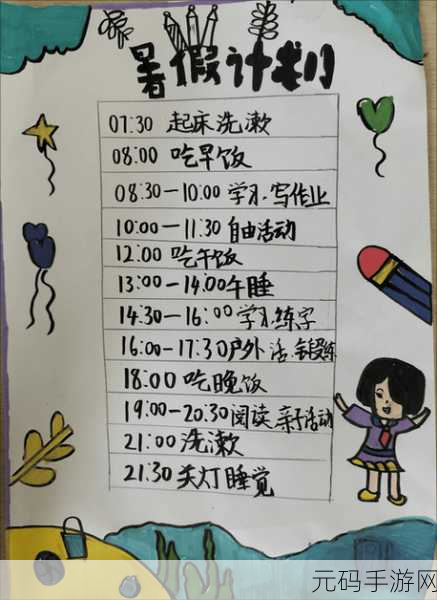 暑假计划
07:30 起床洗漱
08:00 吃早饭
08:30—10:00 学习.写作业
10:00—11:30 自由活动
12:00 吃午饭
13:00—14.00午睡
14:30—16:00学习.练字
16:00—17:30户外活.锻练
18:00吃晚饭
19:00—20:30阅读.亲子活动
21:00洗漱
21:30关灯睡觉
元码手游网